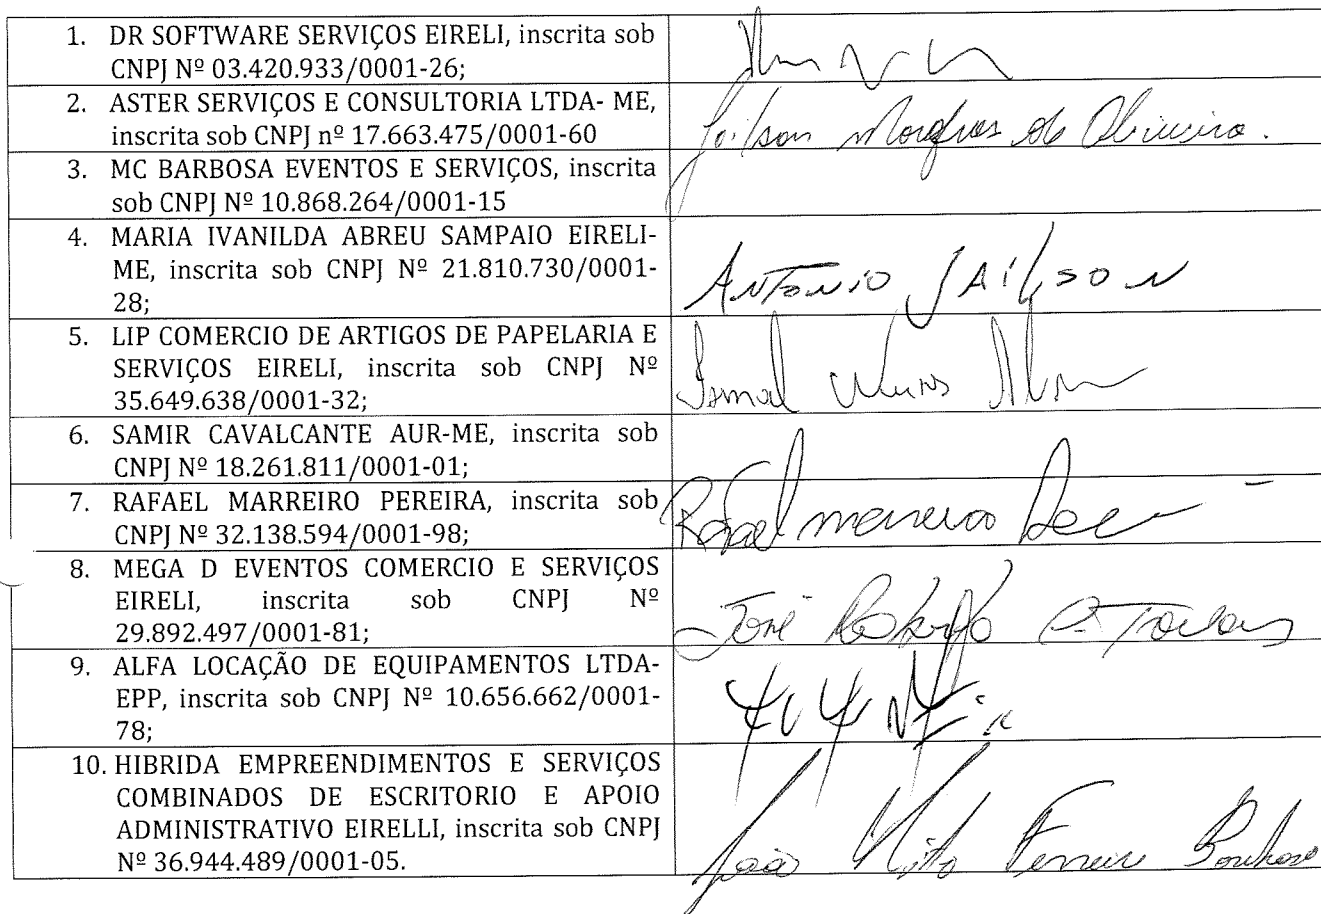 1. DR SOFTWARE SERVIÇOS EIRELI, inscrita sob
CNPJ Nº 03.420.933/0001-26;
2. ASTER SERVIÇOS E CONSULTORIA LTDA- ME,
inscrita sob CNPJ nº 17.663.475/0001-60
3. MC BARBOSA EVENTOS E SERVIÇOS, inscrita
sob CNPJ Nº 10.868.264/0001-15
4. MARIA IVANILDA ABREU SAMPAIO EIRELI-
ME, inscrita sob CNPJ Nº 21.810.730/0001-
28;
ANTONIO JAILSON
5. LIP COMERCIO DE ARTIGOS DE PAPELARIA E
SERVIÇOS EIRELI, inscrita sob CNPJ Nº
35.649.638/0001-32;
6. SAMIR CAVALCANTE AUR-ME, inscrita sob
CNPJ Nº 18.261.811/0001-01;
7. RAFAEL MARREIRO PEREIRA, inscrita sob
CNPJ Nº 32.138.594/0001-98;
Rafael
8. MEGA D EVENTOS COMERCIO E SERVIÇOS
EIRELI, inscrita sob CNPJ Nº
29.892.497/0001-81;
José
9. ALFA LOCAÇÃO DE EQUIPAMENTOS LTDA-
EPP, inscrita sob CNPJ Nº 10.656.662/0001-
78;
10. HIBRIDA EMPREENDIMENTOS E SERVIÇOS
COMBINADOS DE ESCRITORIO E APOIO
ADMINISTRATIVO EIRELLI, inscrita sob CNPJ
Nº 36.944.489/0001-05.
João